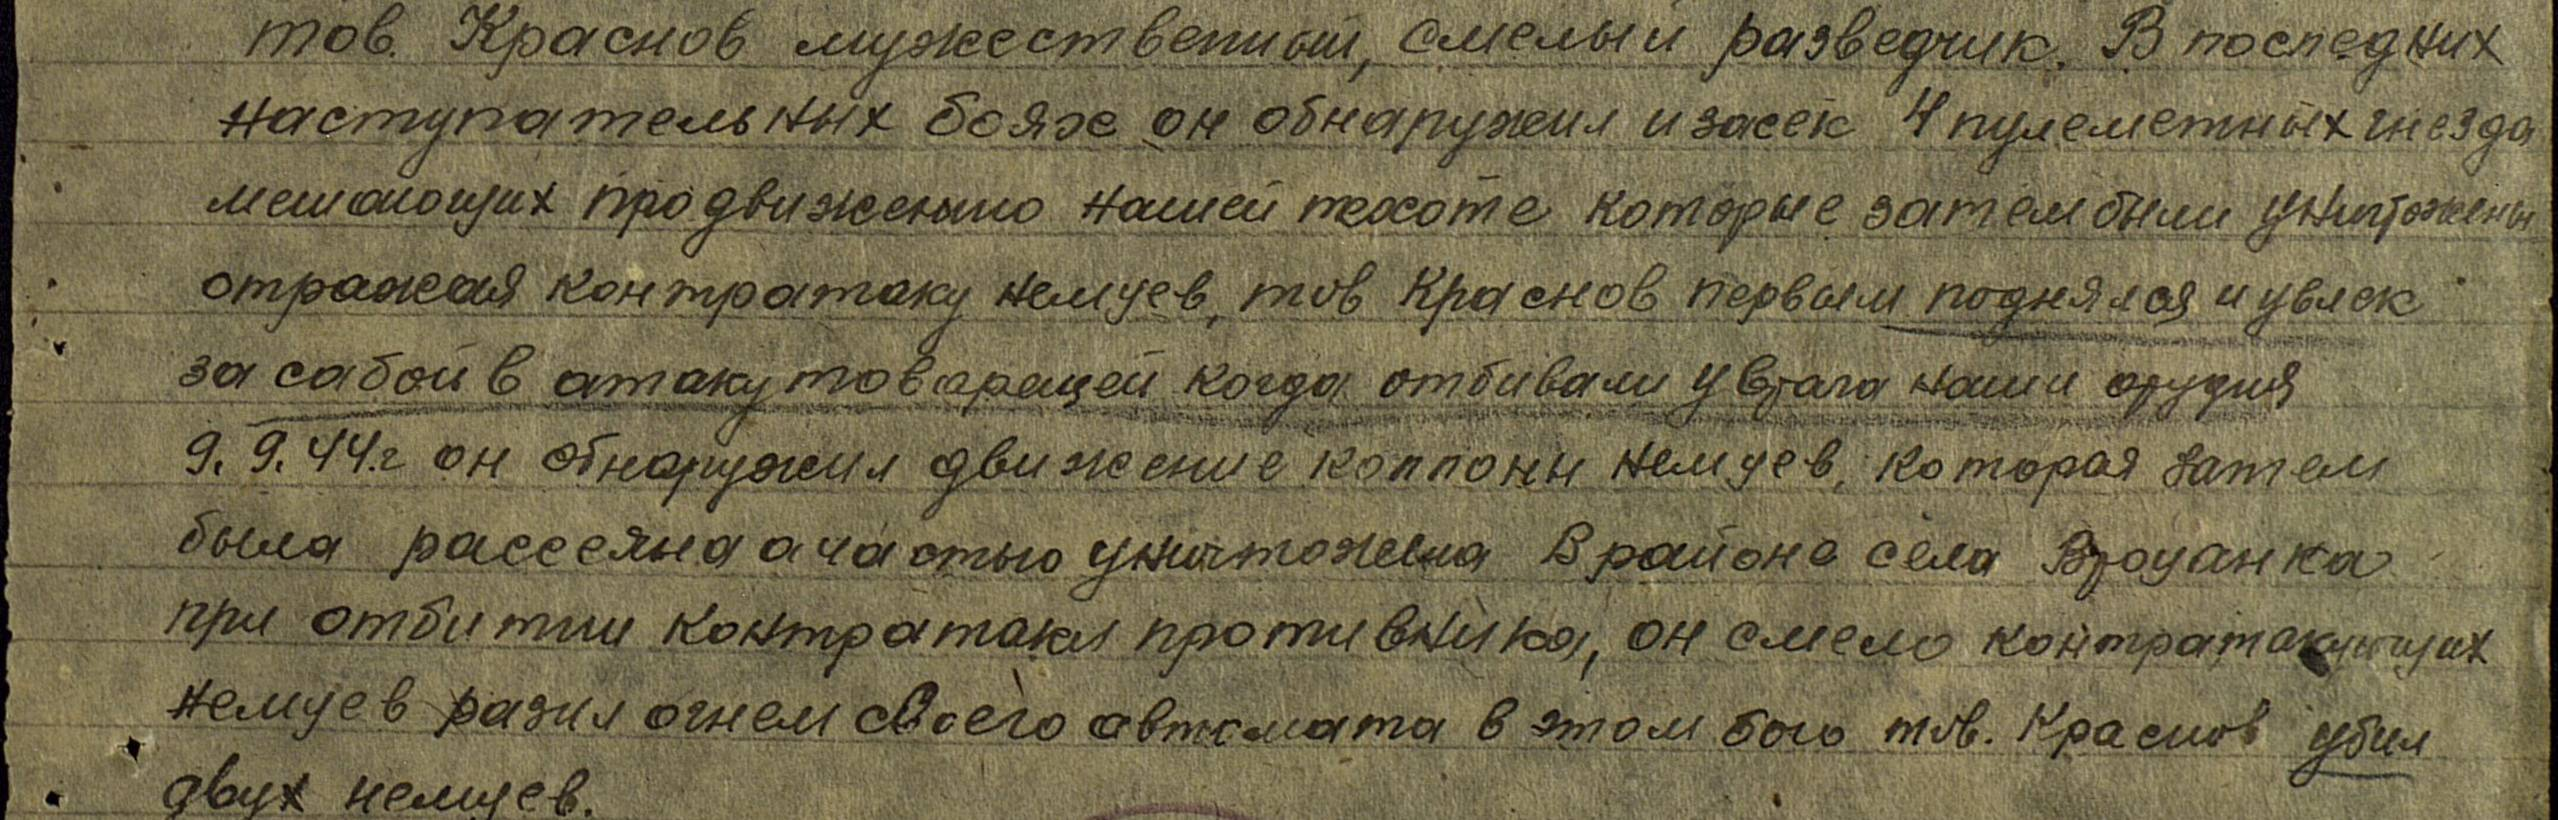 тов. Краснов мужественный, смелый разведчик. В последних
наступательных боях он обнаружил и засек 4 пулеметных гнезда
мешающих продвижению нашей пехоте которые затем были уничтожены
отражая контратаку немцев, тов Краснов первым поднялся и увлек
за сабой в атаку товарещей когда отбивали у врага наши орудия
9.9.44.г он обнаружил движение колпоны немцев, которая затем
была рассеяна а частью уничтожена В районе села Вроцанка
при отбитии контратаки противника, он смело контратакующих
немцев разил огнем своего автомата в этом бою тов. Краснов убил
двух немцев.